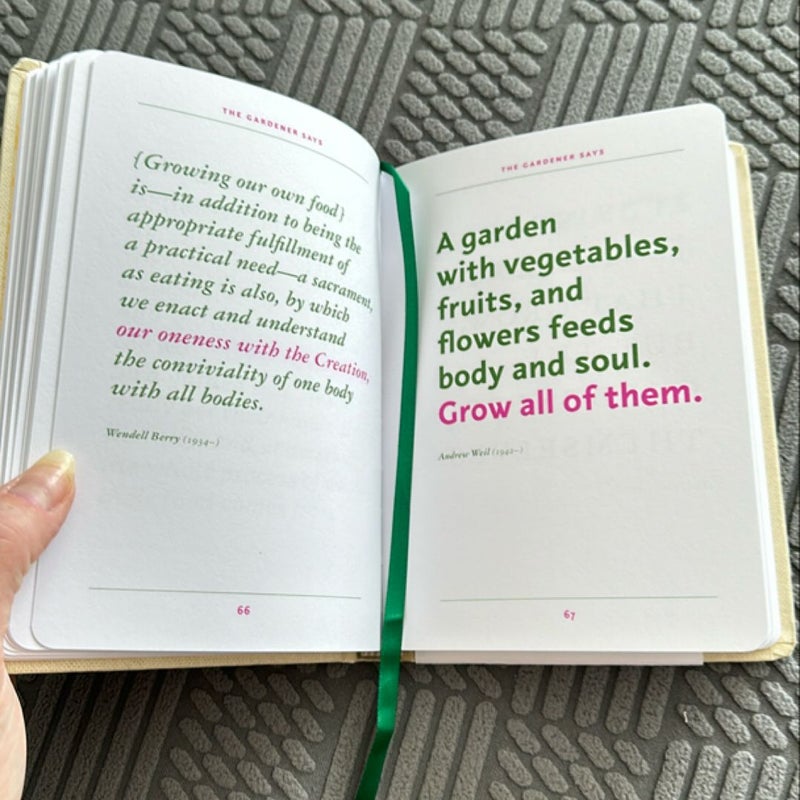 THE GARDENER SAYS
{Growing our own food}
is—in addition to being the
appropriate fulfillment of
a practical need—a sacrament,
as eating is also, by which
we enact and understand
our oneness with the Creation,
the conviviality of one body
with all bodies.
Wendell Berry (1934–)
66
THE GARDENER SAYS
A garden
with vegetables,
fruits, and
flowers feeds
body and soul.
Grow all of them.
Andrew Weil (1942–)
67